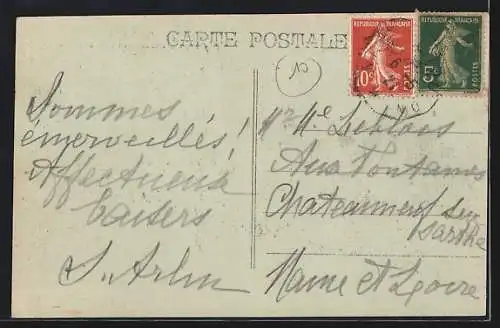 CARTE POSTALE
REPUBLIQUE FRANÇAISE
10c
REPUBLIQUE FRANÇAISE
5c
POSTES
Sommes
émerveillés!
Affectueux
baisers
Mr Me Leblois
Aux Fontaines
Chateauneuf sur
Sarthe
Maine et Loire